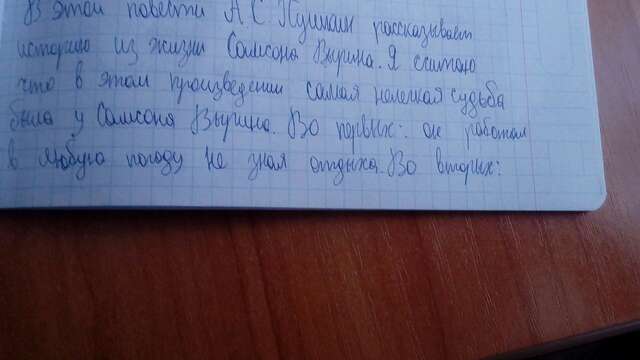 В этой повести А.С. Пушкин рассказывает
историю из жизни Самсона Вырина. Я считаю
что в этом произведении самая нелегкая судьба
была у Самсона Вырина. Во первых: он работал
в любую погоду не зная отдыха. Во вторых: